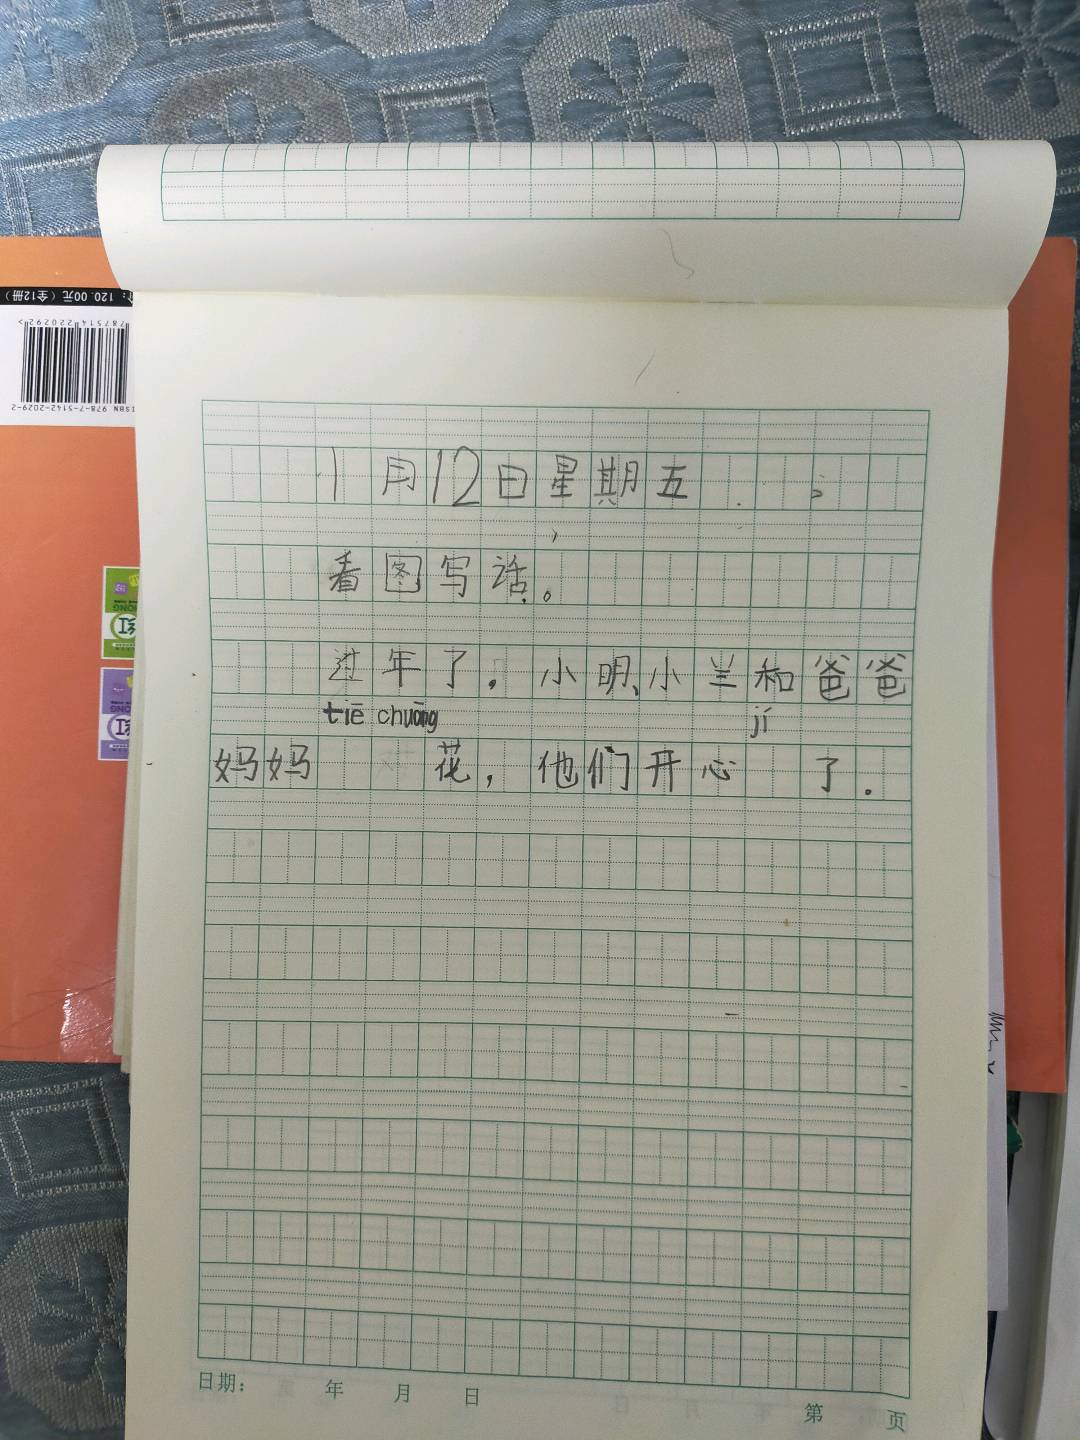 ：120.00元（全12册）
787514220292>
ISBN 978-7-5142-2029-2
红
红
1月12日星期五
看图写话。
过年了，小明、小兰和爸爸
tiē chuāng jí
妈妈 花，他们开心 了。
日期： 年 月 日
第 页